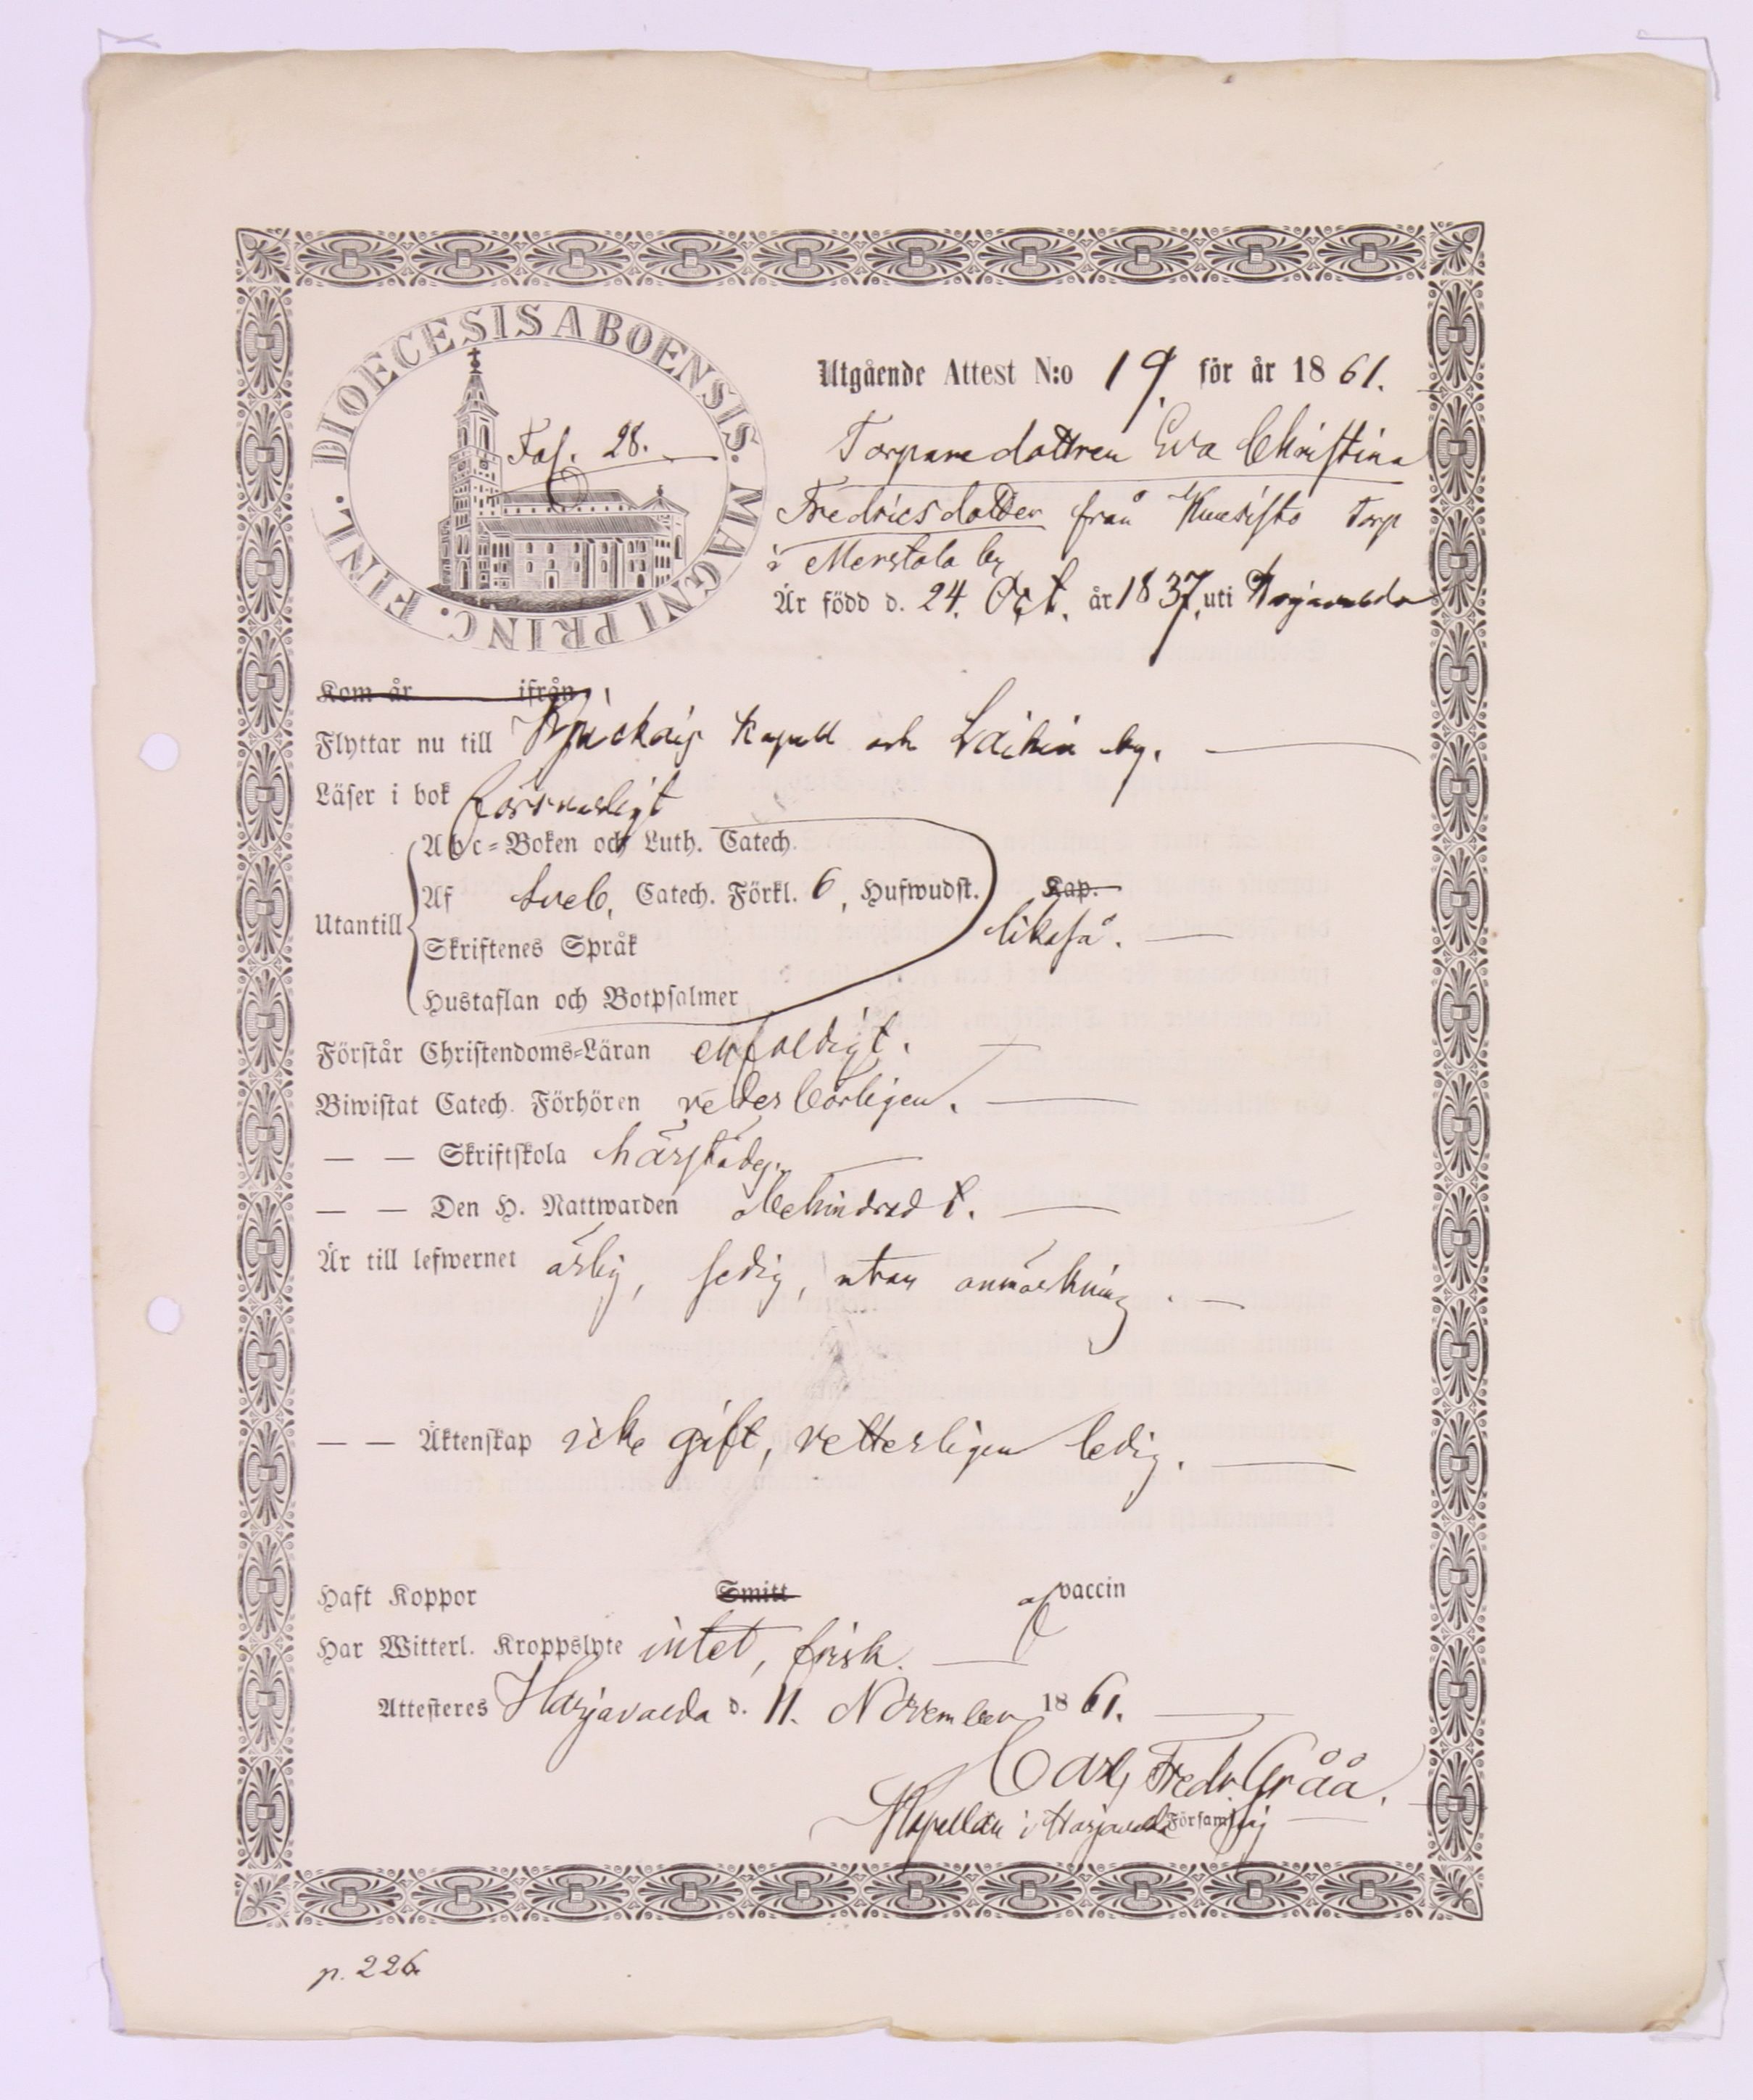 DIOECESIS ABOENSIS. MAGNI PRINC. FINL.
Fol. 28.
Utgående Attest N:o 19. för år 1861.
Torparedottren Eva Christina
Fredricsdotter från Kuusisto Torp
i Merstola by
Är född d. 24. Oct. år 1837, uti Harjavalda
Kom år ifrån
Flyttar nu till Kjulois Kapell och by.
Läser i bok försvarligt
Utantill
Abc-Boken och Luth. Catech.
Af Sveb. Catech. Förkl. 6, Hufwudst. Kap.
likaså.
Skriftenes Språk
Hustaflan och Botpsalmer
Förstår Christendoms-Läran enfaldigt.
Biwistat Catech. Förhören vederbörligen.
— — Skriftskola härstädes.
— — Den H. Nattwarden obehindrad t.
Är till lefwernet ärlig, sedig, utan anmärkning.
— — Äktenskap icke gift, vetterligen ledig.
Haft Koppor Smitt af vaccin
Har Witterl. Kroppslyte intet, frisk.
Attesteras Harjavalda d. 11. November 1861.
Carl Fredr. Gråå.
Kapellan i Harjavalda Församling
p. 226.